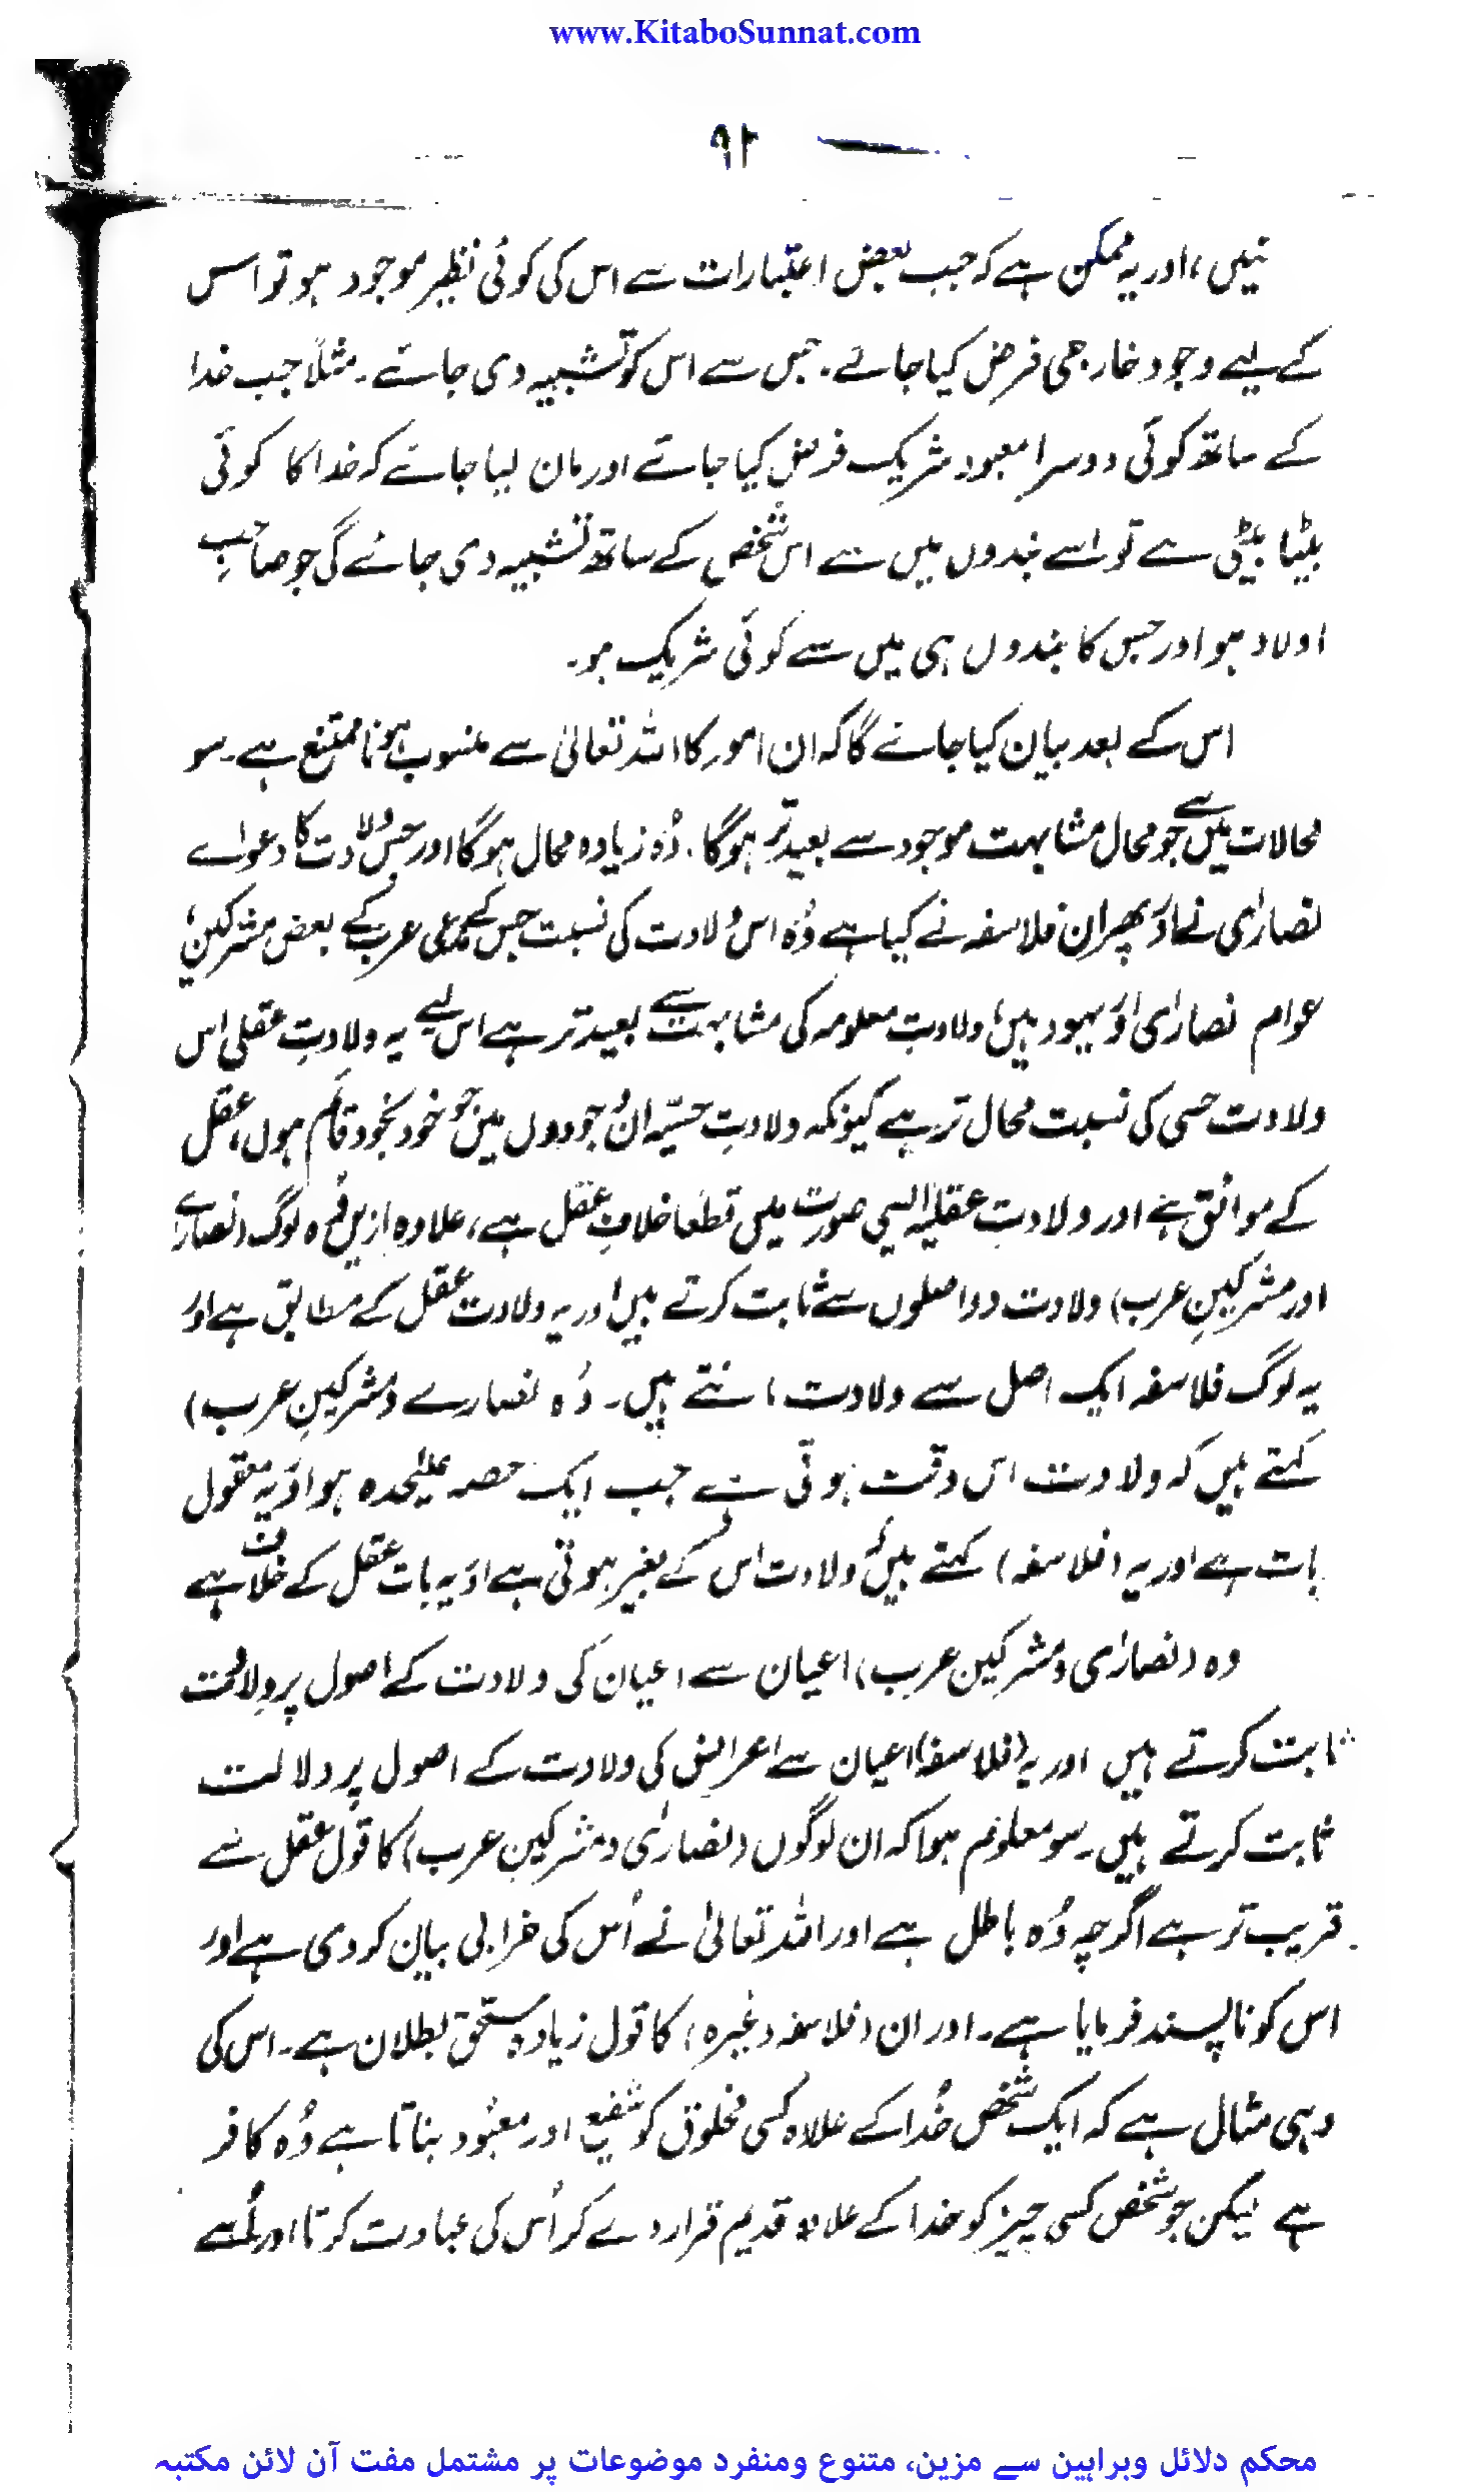 www.KitaboSunnat.com
۹۲
نہیں، اور یہ ممکن ہے کہ جب بعض اعتبارات سے اس کی کوئی نظیر موجود ہو تو اس
کے لیے وجود خارجی فرض کیا جائے۔ جس سے اس کو تشبیہ دی جائے۔ مثلاً جب خدا
کے ساتھ کوئی دوسرا معبود شریک فرض کیا جائے اور مان لیا جائے کہ خدا کا کوئی
بیٹا بیٹی ہے تو اسے بندوں میں سے اس شخص کے ساتھ تشبیہ دی جائے گی جو صاحبِ
اولاد ہو اور جس کا بندوں ہی میں سے کوئی شریک ہو۔
اس کے بعد بیان کیا جائے گا کہ ان امور کا اللہ تعالیٰ سے منسوب ہونا ممتنع ہے۔ سو
محالات میں سے جو محال مشابہت موجود سے بعید تر ہوگا۔ وُہ زیادہ محال ہوگا اور جس ولادت کا دعوٰے
نصارٰی نے اور پھر ان فلاسفہ نے کیا ہے وُہ اس ولادت کی نسبت جس کے مدعی عرب کے بعض مشرکین،
عوام نصارٰی اور یہود ہیں، ولادتِ معلومہ کی مشابہت سے بعید تر ہے اس لیے یہ ولادتِ عقلی اس
ولادت حسی کی نسبت محال تر ہے کیونکہ ولادتِ حسیّہ ان وجودوں میں جو خود بخود قائم ہوں، عقل
کے موافق ہے اور ولادتِ عقلیہ ایسی صورت میں قطعاً خلافِ عقل ہے، علاوہ ازیں وُہ لوگ (نصارٰے
اور مشرکینِ عرب) ولادت دو اصلوں سے ثابت کرتے ہیں اور یہ ولادت عقل کے مطابق ہے اور
یہ لوگ فلاسفہ ایک اصل سے ولادت مانتے ہیں۔ وُہ نصارے و مشرکینِ عرب)
کہتے ہیں کہ ولادت اس وقت ہوتی ہے جب ایک حصہ علیٰحدہ ہو اور یہ معقول
بات ہے اور یہ (فلاسفہ) کہتے ہیں کہ ولادت اس کے بغیر ہوتی ہے اور یہ بات عقل کے خلاف ہے
وہ (نصارٰی و مشرکین عرب) اعیان سے اعیان کی ولادت کے اصول پر ولادت
ثابت کرتے ہیں اور یہ (فلاسفہ) اعیان سے اعراض کی ولادت کے اصول پر دلالت
ثابت کرتے ہیں۔ سو معلوم ہوا کہ ان لوگوں (نصارٰی و مشرکینِ عرب) کا قول عقل سے
قریب تر ہے اگرچہ وُہ باطل ہے اور اللہ تعالیٰ نے اُس کی خرابی بیان کر دی ہے اور
اس کو ناپسند فرمایا ہے۔ اور ان (فلاسفہ وغیرہ) کا قول زیادہ مستحق بطلان ہے۔ اس کی
وہی مثال ہے کہ ایک شخص خُدا کے علاوہ کسی مخلوق کو شفیع اور معبُود بناتا ہے وُہ کافر
ہے لیکن جو شخص کسی چیز کو خدا کے علاوہ قدیم قرار دے کر اُس کی عبادت کرتا اور اُسے
محکم دلائل وبراہین سے مزین، متنوع ومنفرد موضوعات پر مشتمل مفت آن لائن مکتبہ